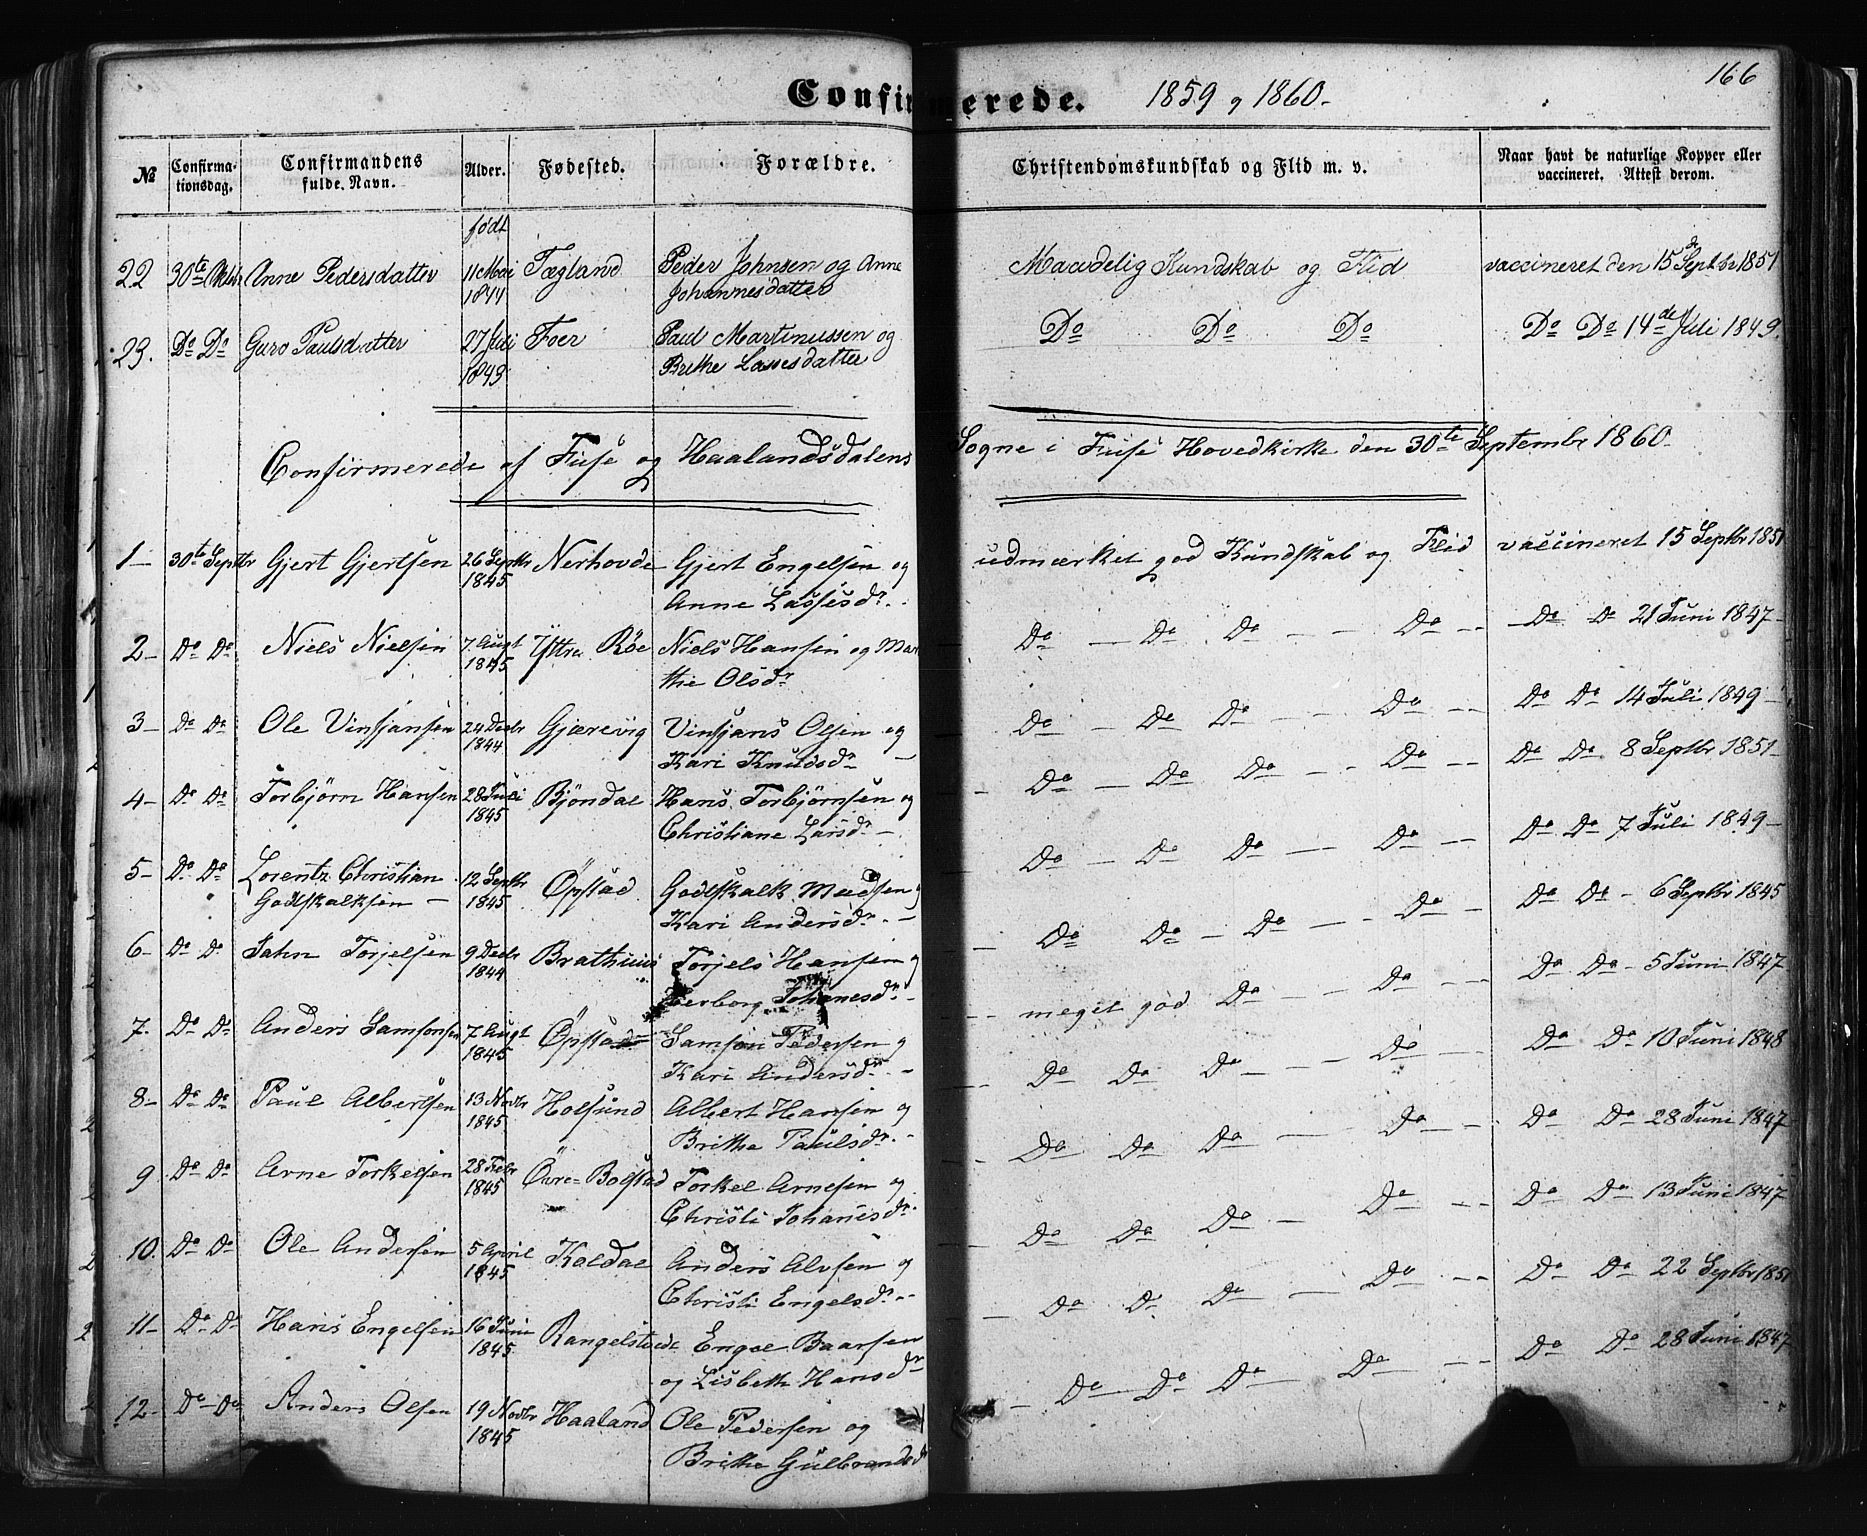 166
Confirmerede. 1859 og 1860.
№ Confirma-tionsdag. Confirmandens fulde Navn. Alder. Fødested. Forældre. Christendomskundskab og Flid m. v. Naar havt de naturlige Kopper eller vaccineret. Attest derom.
født
22 30te Anne Pedersdatter 11 Mai 1844 Tægland Peder Johnsen og Anne Maadelig Kundskab og Flid vaccineret den 15de Septbr 1851
Johannesdatter
23. Do Do Guro Paulsdatter 27 Juli 1843 Foer Paul Martinussen og Do Do Do Do Do 14de Juli 1849.
Brithe Lassesdatter
Confirmerede af Fuse og Haalandsdalens Sogne i Fuse Hovedkirke den 30te Septembr 1860.
1 30te Septbr Gjert Gjertsen 26 Septbr 1845 Nerhovde Gjert Engelsen og udmærket god Kundskab og Flid vaccineret 15 Septbr 1851
Anne Lassesdr.
2 Do Do Niels Nielsen 7 Augt 1845 Yttre Röe Niels Hansen og Mar Do Do Do Do Do Do 21 Juni 1847
the Olsdr
3 Do Do Ole Vinsjansen 24 Decbr 1844 Gjærevig Vinsjans Olsen og Do Do Do Do Do Do 14 Juli 1849
Kari Knudsdr
4 Do Do Torbjørn Hansen 28 Juli 1845 Bjöndal Hans Torbjørnsen og Do Do Do Do Do Do 8 Septbr 1851
Christiane Larsdr
5 Do Do Lorentz Christian 12 Septbr 1845 Öpstad Godskalk Madsen og Do Do Do Do Do Do 7 Juli 1849
Godskalksen Kari Andersdr.
6 Do Do Jahn Torjelsen 9 Decbr 1844 Brathuus Torjels Hansen og Do Do Do Do Do Do 6 Septbr 1845
Herborg Johanesdr.
7. Do Do Anders Samsonsen 7 Augt 1845 Öpstad Samson Pedersen og meget god Do Do Do Do 5 Juni 1847
Kari Andersdr.
8 Do Do Paul Albertsen 13 Novbr 1845 Holsund Albert Hansen og Do Do Do Do Do Do 10 Juni 1848
Brithe Paulsdr.
9 Do Do Arne Torkelsen 28 Febr 1845 Övre Bolstad Torkel Arnesen og Do Do Do Do Do Do 28 Juni 1847
Christi Johanesdr.
10. Do Do Ole Andersen 5 April 1845 Koldal Anders Alvsen og Do Do Do Do Do Do 13 Juni 1847
Christi Engelsdr.
11 Do Do Hans Engelsen 16 Juni 1845 Rangelstvede Engel Baarsen Do Do Do Do Do Do 22 Septbr 1851
og Lisbeth Hansdr
12 Do Do Anders Olsen 19 Novbr 1845 Haaland Ole Pedersen og Do Do Do Do Do Do 28 Juni 1847
Brithe Gulbrandsdr